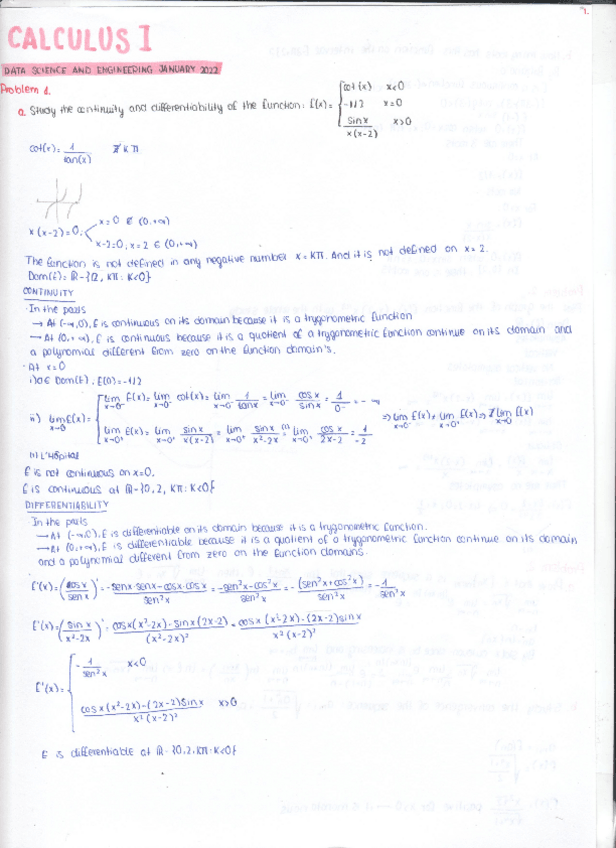 CALCULUS I
DATA SCIENCE AND ENGINEERING JANUARY 2022
Problem 1.
a. Study the continuity and differentiability of the function: f(x)= { cot(x) x<0
-1/2 x=0
sinx / x(x-2) x>0
cot(x)= 1 / tan(x) ∄ kπ
x(x-2)=0; x=0 ∉ (0,+∞)
x-2=0; x=2 ∈ (0,+∞)
The function is not defined in any negative number x=kπ. And it is not defined on x=2.
Dom(f)= ℝ-{2, kπ: k<0}
CONTINUITY
·In the parts
→ At (-∞,0), f is continuous on its domain because it is a trygonometric function
→ At (0,+∞), f is continuous because it is a quotient of a trygonometric function continue on its domain and
a polynomial different from zero on the function domain's.
·At x=0
i) 0∈ Dom(f); f(0)=-1/2
ii) lim x→0 f(x)= { lim x→0⁻ f(x)= lim x→0⁻ cot(x)= lim x→0⁻ 1/tanx = lim x→0⁻ cosx/sinx = 1/0⁻ = -∞
lim x→0⁺ f(x)= lim x→0⁺ sinx / x(x-2) = lim x→0⁺ sinx / x²-2x (1)= lim x→0⁺ cosx / 2x-2 = 1/-2
⇒ lim x→0⁻ f(x) ≠ lim x→0⁺ f(x) ⇒ ∄ lim x→0 f(x)
(1) L'Hôpital
f is not continuous on x=0.
f is continuous at ℝ-{0,2, kπ: k<0}
DIFFERENTIABILITY
·In the parts
→ At (-∞,0), f is differentiable on its domain because it is a trygonometric function.
→ At (0,+∞), f is differentiable because it is a quotient of a trygonometric function continue on its domain
and a polynomial different from zero on the function domains.
f'(x)= (cosx / senx)' = -senx·senx-cosx·cosx / sen²x = -sen²x-cos²x / sen²x = -(sen²x+cos²x) / sen²x = -1 / sen²x
f'(x)= (sinx / x²-2x)' = cosx(x²-2x)-sinx(2x-2) / (x²-2x)² = cosx(x²-2x)-(2x-2)sinx / x²(x-2)²
f'(x)= { -1 / sen²x x<0
cosx(x²-2x)-(2x-2)sinx / x²(x-2)² x>0
f is differentiable at ℝ-{0,2, kπ: k<0}